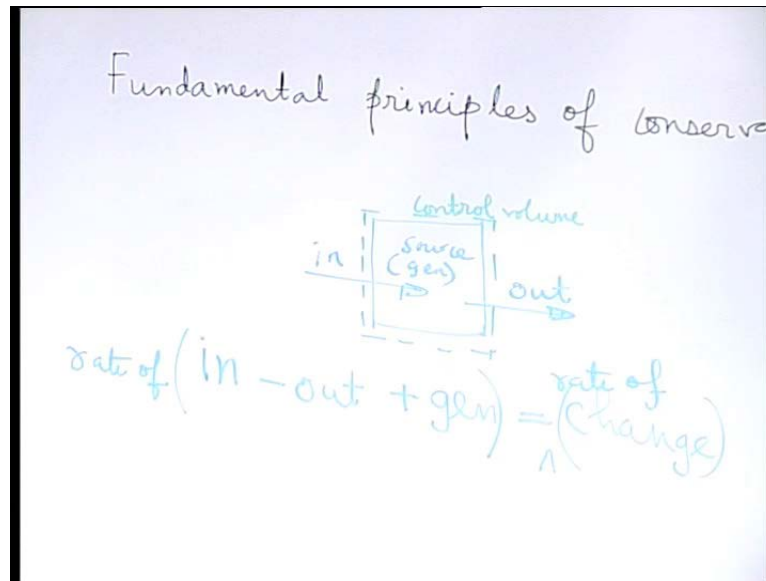 Fundamental principles of conserva
control volume
source
in
(gen)
out
rate of (in - out + gen) = rate of (Change)